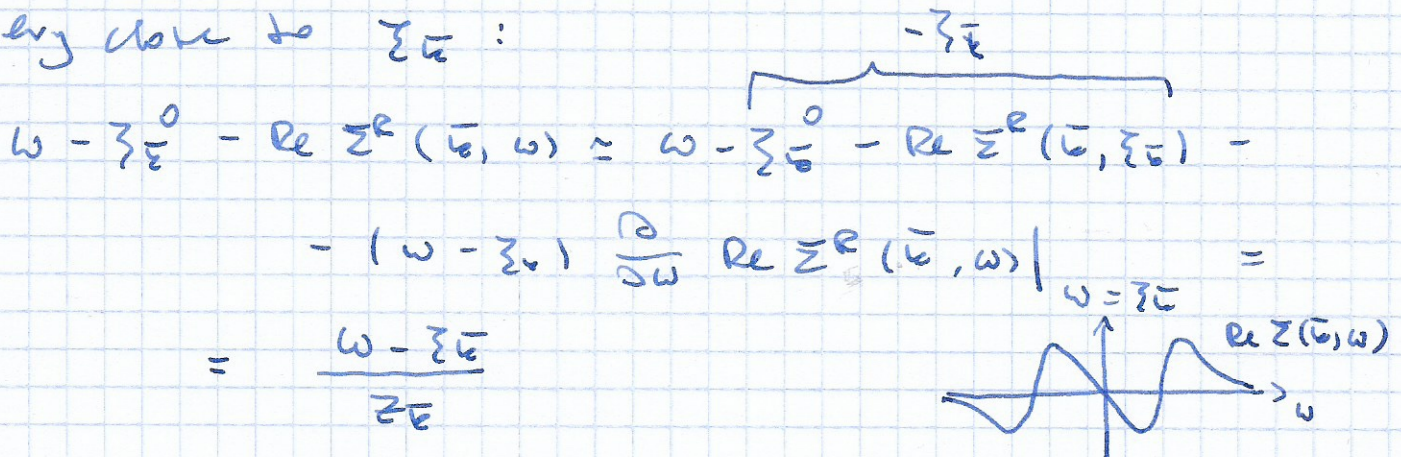 ery close to ξ_k̄ :
-ξ_k̄
ω - ξ_k̄^0 - Re Σ^R (k̄, ω) ≃ ω - ξ_k̄^0 - Re Σ^R (k̄, ξ_k̄) -
- (ω - ξ_k) ∂/∂ω Re Σ^R (k̄, ω) |_{ω = ξ_k̄} =
= (ω - ξ_k̄) / Z_k̄
Re Σ(k̄, ω)
ω